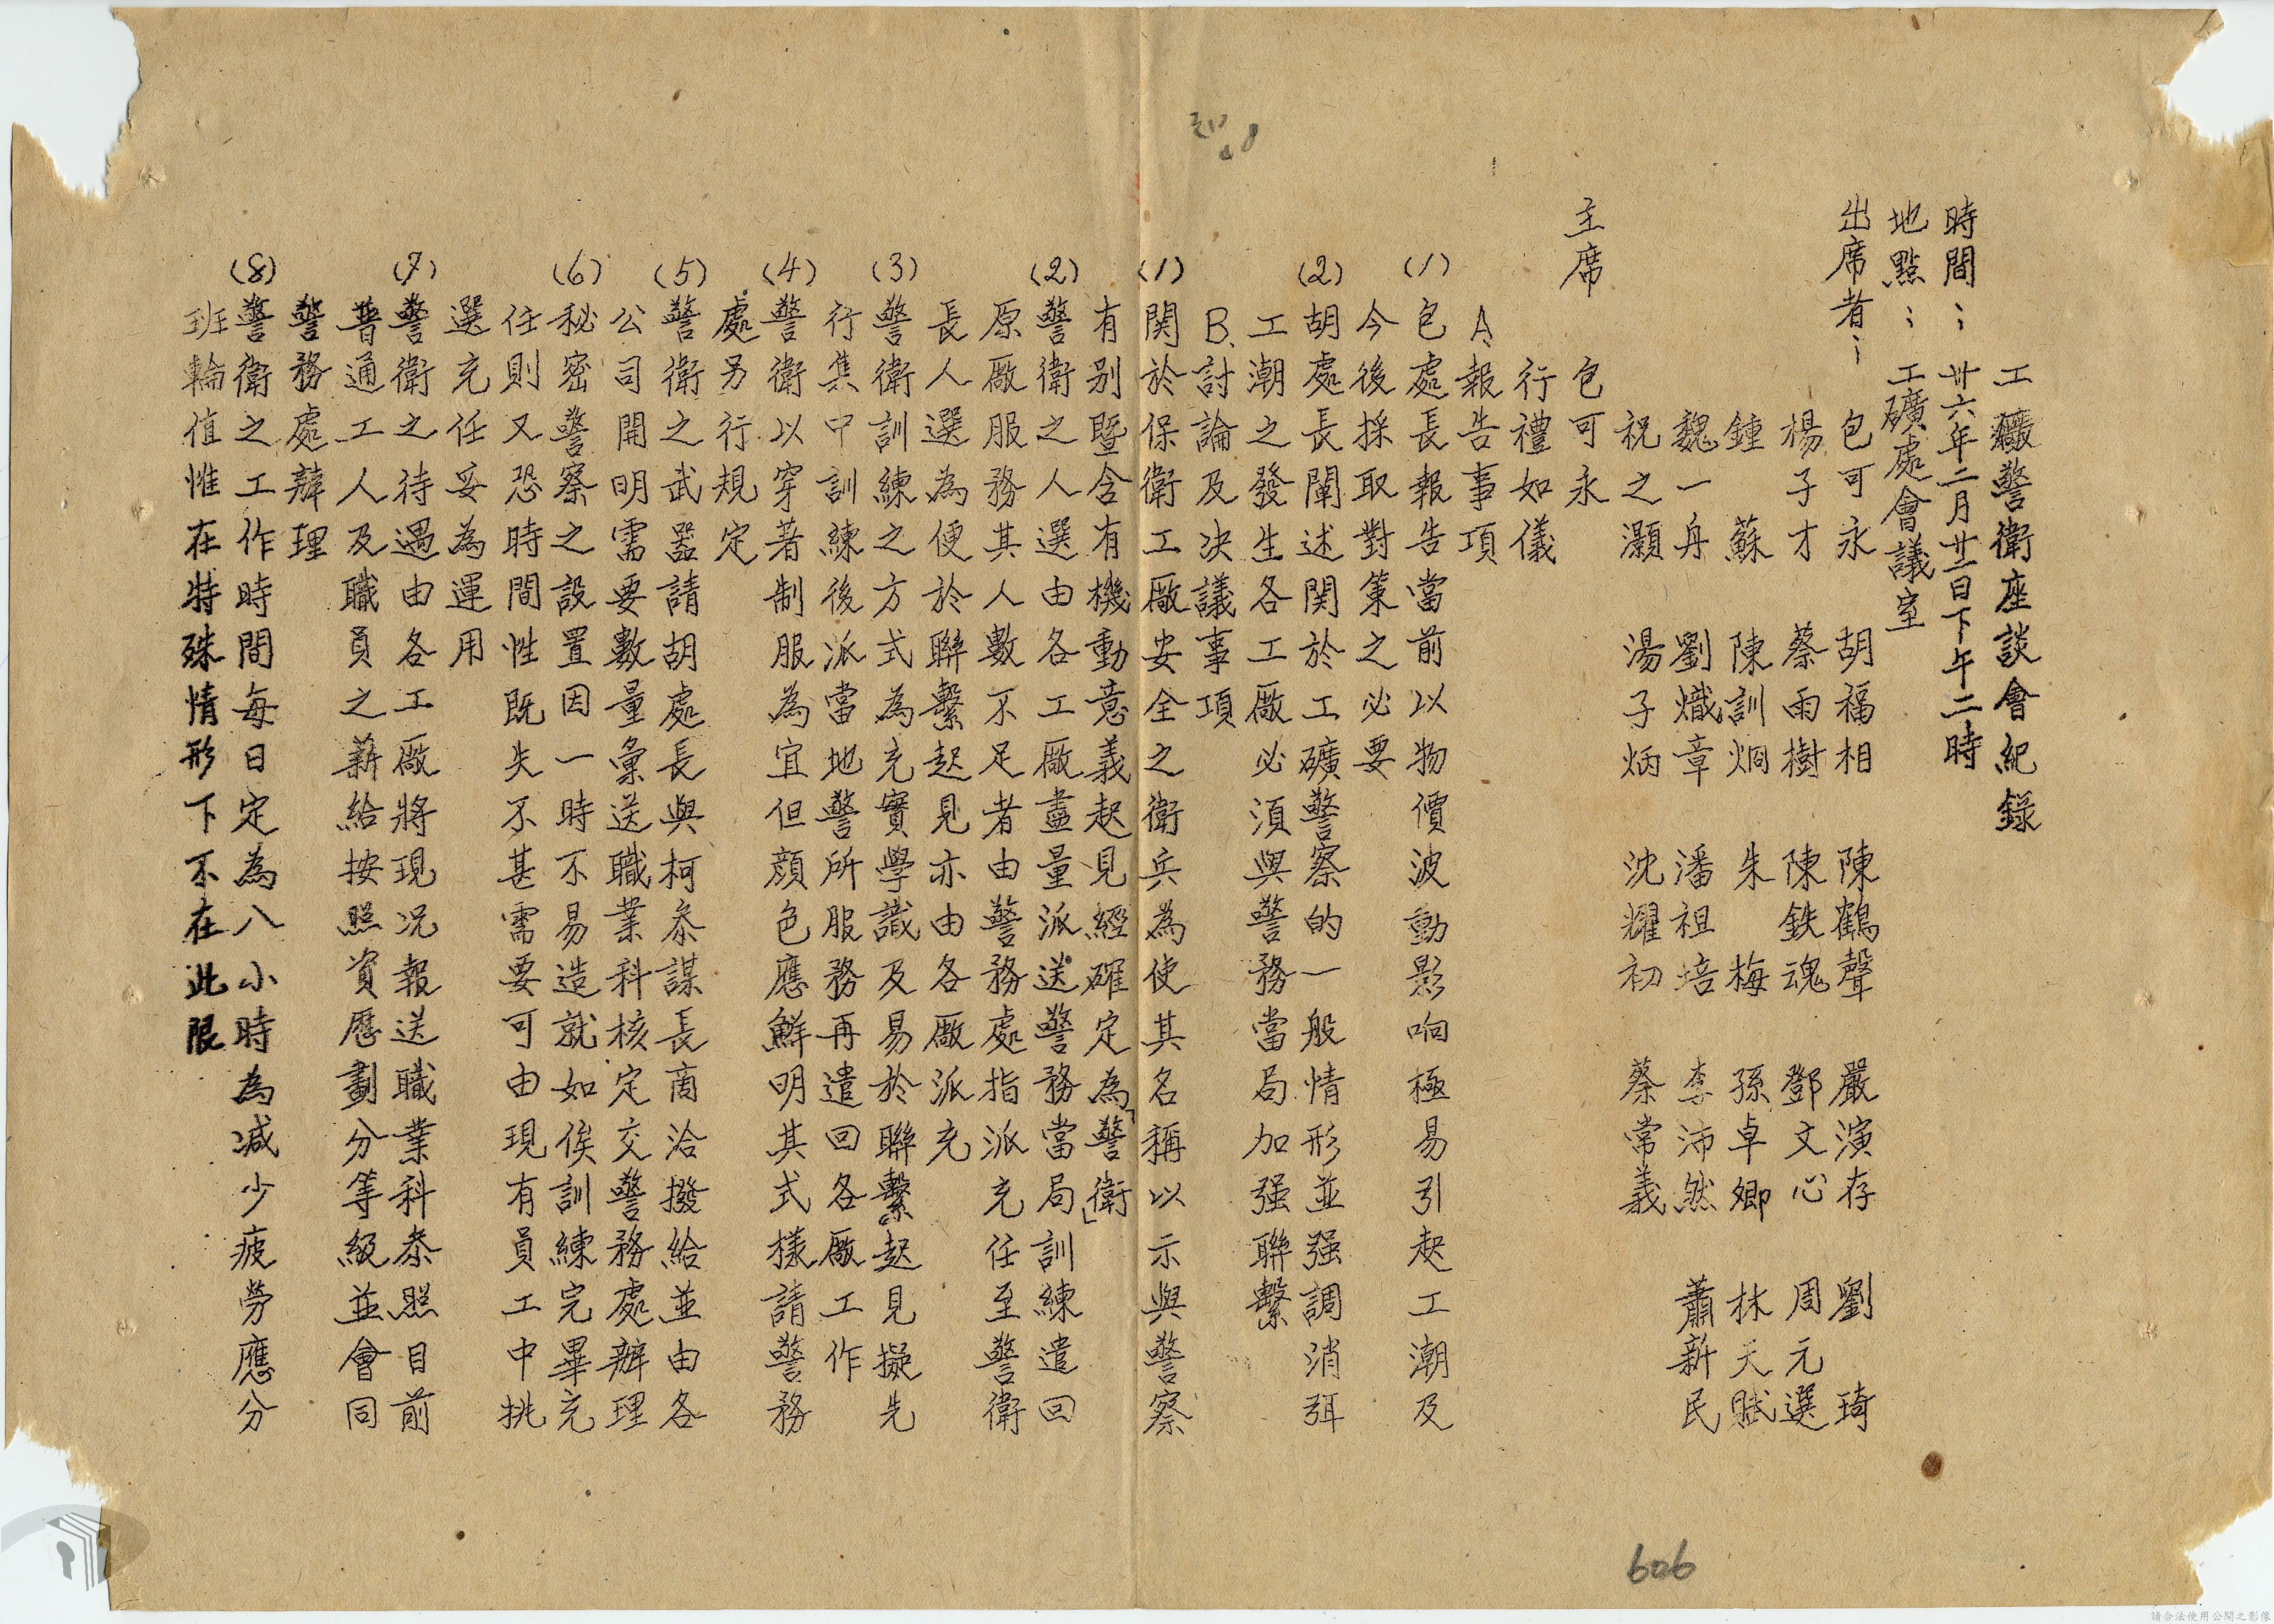 工廠警衛座談會紀錄
時間：卅六年二月廿二日下午二時
地點：工礦處會議室
出席者：包可永 胡福相 陳鶴聲 嚴演存 劉琦
楊子才 蔡雨樹 陳鉄魂 鄧文心 周元選
鍾蘇 陳訓炯 朱梅 孫卓卿 林天賦
魏一舟 劉熾章 潘祖培 李沛然 蕭新民
祝之灝 湯子炳 沈耀初 蔡常義
主席 包可永
行禮如儀
A、報告事項
(1)包處長報告當前以物價波動影响極易引起工潮及
今後採取對策之必要
(2)胡處長闡述関於工礦警察的一般情形並强調消弭
工潮之發生各工廠必須與警務當局加强聯繫
B、討論及决議事項
(1)関於保衛工廠安全之衛兵為使其名稱以示與警察
有别暨含有機動意義起見經確定為「警衛」
(2)警衛之人選由各工廠盡量派送警務當局訓練遣回
原廠服務其人數不足者由警務處指派充任至警衛
長人選為便於聯繫起見亦由各廠派充
(3)警衛訓練之方式為充實學識及易於聯繫起見擬先
行集中訓練後派當地警所服務再遣回各廠工作
(4)警衛以穿著制服為宜但顔色應鮮明其式樣請警務
處另行規定
(5)警衛之武器請胡處長與柯叅謀長商洽撥給並由各
公司開明需要數量彙送職業科核定交警務處辦理
(6)秘密警察之設置因一時不易造就如俟訓練完畢充
任則又恐時間性既失不甚需要可由現有員工中挑
選充任妥為運用
(7)警衛之待遇由各工廠將現况報送職業科叅照目前
普通工人及職員之薪給按照資歷劃分等級並會同
警務處辦理
(8)警衛之工作時間每日定為八小時為减少疲勞應分
班輪值惟在特殊情形下不在此限
606
請合法使用公開之影像